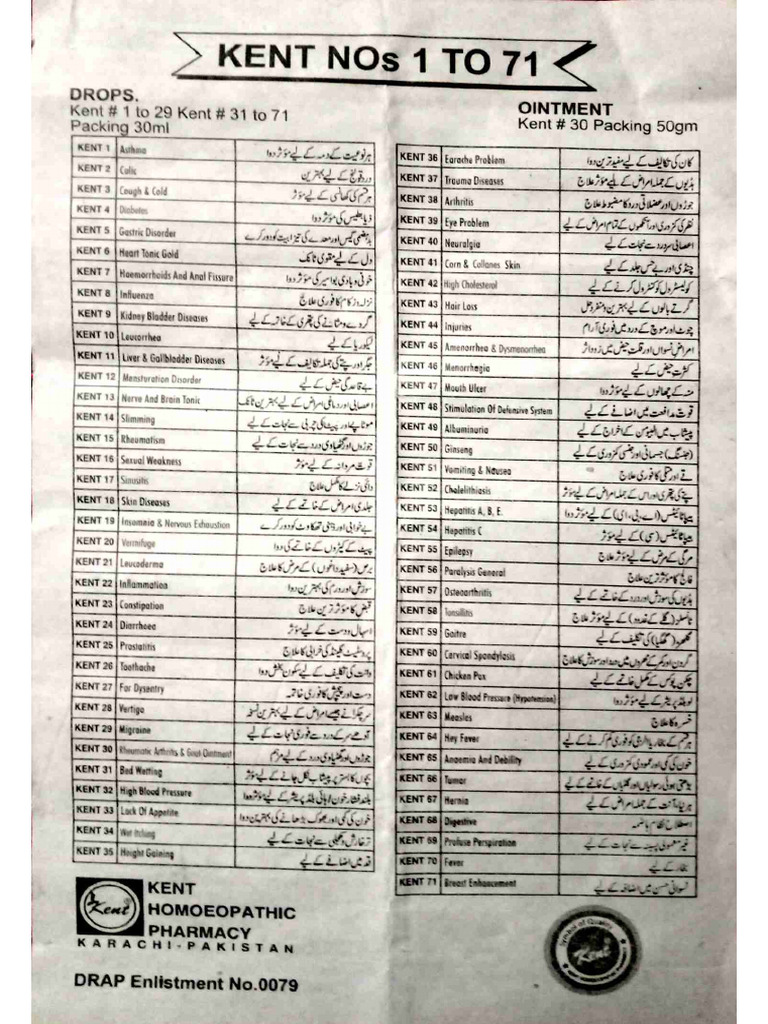 KENT NOs 1 TO 71
DROPS.
Kent # 1 to 29 Kent # 31 to 71
Packing 30ml
OINTMENT
Kent # 30 Packing 50gm
KENT 1 Asthma ہر نوعیت کے دمہ کے لیے مؤثر دوا
KENT 2 Colic درد قولنج کے لیے بہترین
KENT 3 Cough & Cold ہر قسم کی کھانسی کے لیے مؤثر
KENT 4 Diabetes ذیابطیس کی مؤثر دوا
KENT 5 Gastric Disorder بدہضمی گیس اور معدے کی تیزابیت کو دور کرے
KENT 6 Heart Tonic Gold دل کے لیے مقوی ٹانک
KENT 7 Haemorrhoids And Anal Fissure خونی و بادی بواسیر کی مؤثر دوا
KENT 8 Influenza نزلہ زکام کا فوری علاج
KENT 9 Kidney Bladder Diseases گردے و مثانے کی پتھری کے خاتمہ کے لیے
KENT 10 Leucorrhea لیکوریا کے لیے
KENT 11 Liver & Gallbladder Diseases جگر اور پتے کی جملہ تکالیف کے لیے مؤثر
KENT 12 Mensturation Disorder بے قاعدگی حیض کے لیے
KENT 13 Nerve And Brain Tonic اعصابی اور دماغی امراض کے لیے بہترین ٹانک
KENT 14 Slimming موٹاپے اور پیٹ کی چربی سے نجات کے لیے
KENT 15 Rheumatism جوڑوں اور گنٹھیاوی درد سے نجات کے لیے
KENT 16 Sexual Weakness قوت مردانہ کے لیے مؤثر
KENT 17 Sinusitis دائمی نزلے کا مکمل علاج
KENT 18 Skin Diseases جلدی امراض کے خاتمے کے لیے
KENT 19 Insomnia & Nervous Exhaustion بے خوابی اور ذہنی تھکاوٹ کو دور کرے
KENT 20 Vermifuge پیٹ کے کیڑوں کے خاتمے کی دوا
KENT 21 Leucoderma برص (سفید داغوں) کے مرض کا علاج
KENT 22 Inflammation سوزش اور ورم کی بہترین دوا
KENT 23 Constipation قبض کا مؤثر ترین علاج
KENT 24 Diarrhoea اسہال و دست کے لیے مؤثر
KENT 25 Prostatitis پروسٹیٹ گلینڈ کی خرابی کا علاج
KENT 26 Toothache دانت کی تکلیف کے لیے سکون بخش دوا
KENT 27 For Dysentry دست اور پیچش کا فوری خاتمہ
KENT 28 Vertigo سر چکرانے جیسے امراض کے لیے بہترین نسخہ
KENT 29 Migraine آدھے سر کے درد سے فوری نجات کے لیے
KENT 30 Rheumatic Arthritis & Gout Ointment جوڑوں اور گنٹھیاوی درد کے لیے مرہم
KENT 31 Bed Wetting بچوں کا بستر پر پیشاب نکل جانے کے لیے مؤثر
KENT 32 High Blood Pressure بلند فشار خون / ہائی بلڈ پریشر کے لیے مؤثر دوا
KENT 33 Lack Of Appetite خون کی کمی اور بھوک بڑھانے کی بہترین دوا
KENT 34 Wet Itching تر خارش و کھجلی سے نجات کے لیے
KENT 35 Height Gaining قد میں اضافے کے لیے
KENT 36 Earache Problem کان کی تکالیف کے لیے مفید ترین دوا
KENT 37 Trauma Diseases ہڈیوں کے جملہ امراض کے لیے مؤثر علاج
KENT 38 Arthritis جوڑوں اور عضلاتی درد کا مضبوط علاج
KENT 39 Eye Problem نظر کی کمزوری اور آنکھوں کے تمام امراض کے لیے
KENT 40 Neuralgia اعصابی سردرد سے نجات کے لیے
KENT 41 Corn & Collanes Skin چنڈی اور بے حس جلد کے لیے
KENT 42 High Cholesterol کولیسٹرول کو کنٹرول کرنے کے لیے
KENT 43 Hair Loss گرتے بالوں کے لیے بہترین و منفرد حل
KENT 44 Injuries چوٹ اور موچ کے درد میں فوری آرام
KENT 45 Amenorrhea & Dysmenorrhea امراض نسواں اور قلت حیض میں زود اثر
KENT 46 Menorrhagia کثرت حیض کے لیے
KENT 47 Mouth Ulcer منہ کے چھالوں کے لیے مؤثر دوا
KENT 48 Stimulation Of Defensive System قوت مدافعت میں اضافے کے لیے
KENT 49 Albuminuria پیشاب میں البیومن کے اخراج کے لیے
KENT 50 Ginseng (جنسنگ) جسمانی اور جنسی کمزوری کے لیے
KENT 51 Vomiting & Nausea قے اور متلی کا فوری علاج
KENT 52 Cholelithiasis پتے کی پتھری اور اس کے جملہ امراض کے لیے مؤثر
KENT 53 Hepatitis A, B, E. ہیپاٹائٹس (اے، بی، ای) کے لیے مؤثر دوا
KENT 54 Hepatitis C ہیپاٹائٹس (سی) کے لیے مؤثر
KENT 55 Epilepsy مرگی کے مرض کے لیے مؤثر علاج
KENT 56 Paralysis General فالج کا مؤثر ترین علاج
KENT 57 Osteoarthritis ہڈیوں کی سوزش اور درد کے خاتمے کے لیے
KENT 58 Tonsillitis ٹانسلز (گلے کے غدود) کے لیے مؤثر علاج
KENT 59 Goitre گلھڑ (گلہڑ) کی تکلیف کے لیے
KENT 60 Cervical Spondylosis گردن اور کمر کے مہروں میں درد اور سوزش کا علاج
KENT 61 Chicken Pox چکن پوکس کے مکمل خاتمے کے لیے
KENT 62 Low Blood Pressure (Hypotension) لو بلڈ پریشر کے لیے مؤثر دوا
KENT 63 Measles خسرہ کا علاج
KENT 64 Hey Fever ہر قسم کے بخار یا الرجی کو فوری کم کرنے کے لیے
KENT 65 Anaemia And Debility خون کی کمی اور عمومی کمزوری کے لیے
KENT 66 Tumor بڑھتی ہوئی رسولیاں اور گلٹیاں کے خاتمے کے لیے
KENT 67 Hernia ہرنیا، آنت کے جملہ امراض کے لیے
KENT 68 Digestive اصلاح نظام ہاضمہ
KENT 69 Profuse Perspiration غیر معمولی پسینہ سے نجات کے لیے
KENT 70 Fever بخار کے لیے
KENT 71 Breast Enhancement نسوانی حسن میں اضافہ کے لیے
Kent
KENT
HOMOEOPATHIC
PHARMACY
KARACHI-PAKISTAN
DRAP Enlistment No.0079
Symbol of Quality
Kent